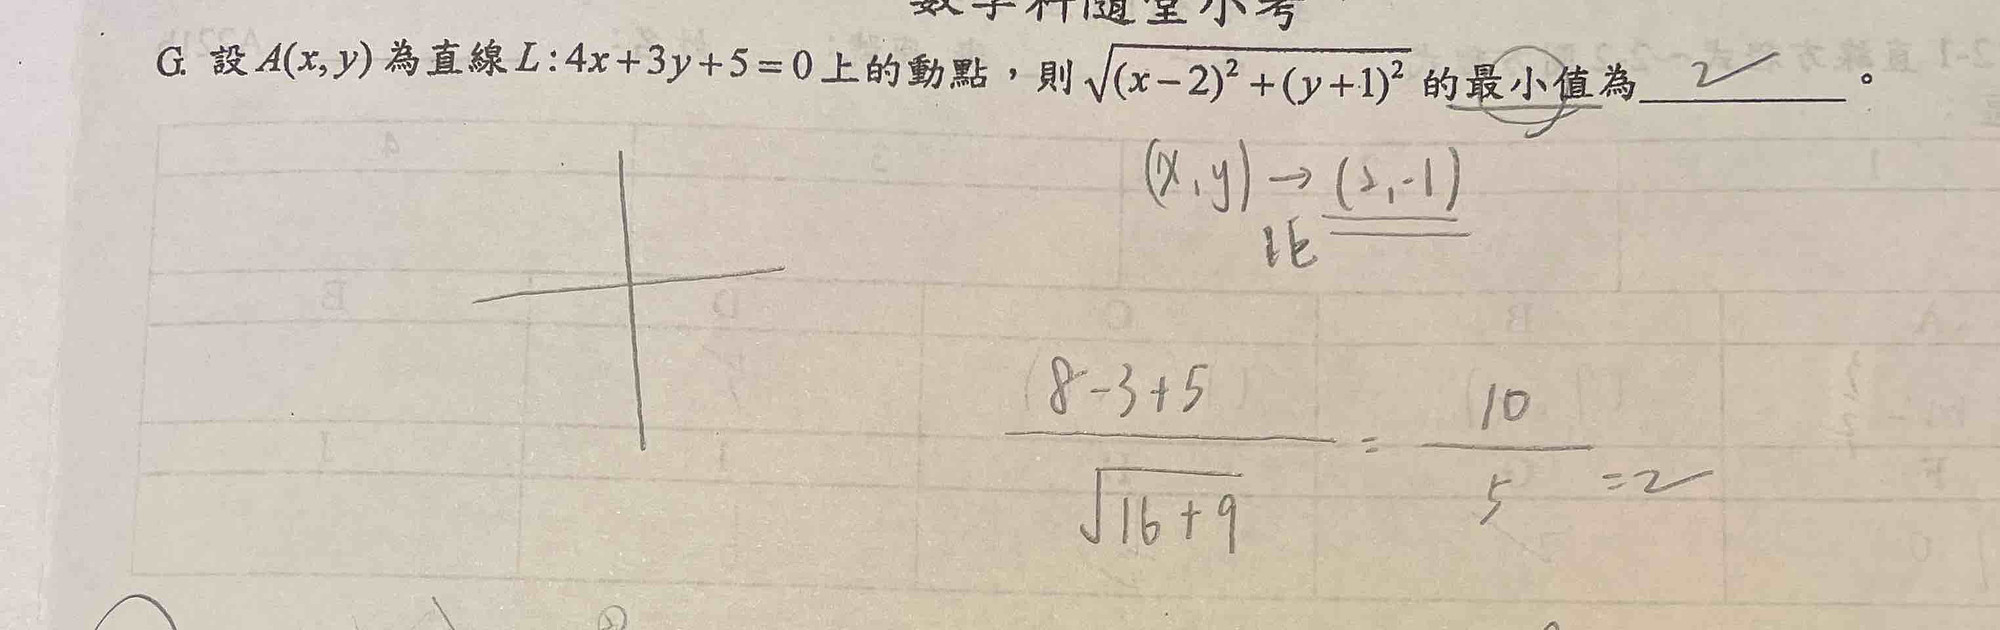 數學科隨堂小考
G. 設 A(x, y) 為直線 L : 4x + 3y + 5 = 0 上的動點，則 √((x−2)² + (y+1)²) 的最小值為 2 。
(x, y) → (2, -1)
距
8-3+5 / √(16+9) = 10 / 5 = 2